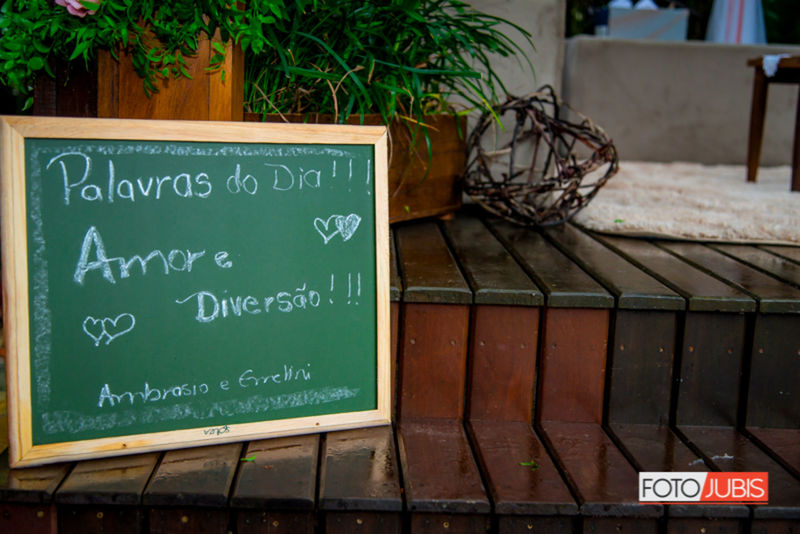 Palavras do Dia!!!
Amor e
Diversão!!!
Ambrasio e Emelini
FOTOJUBIS